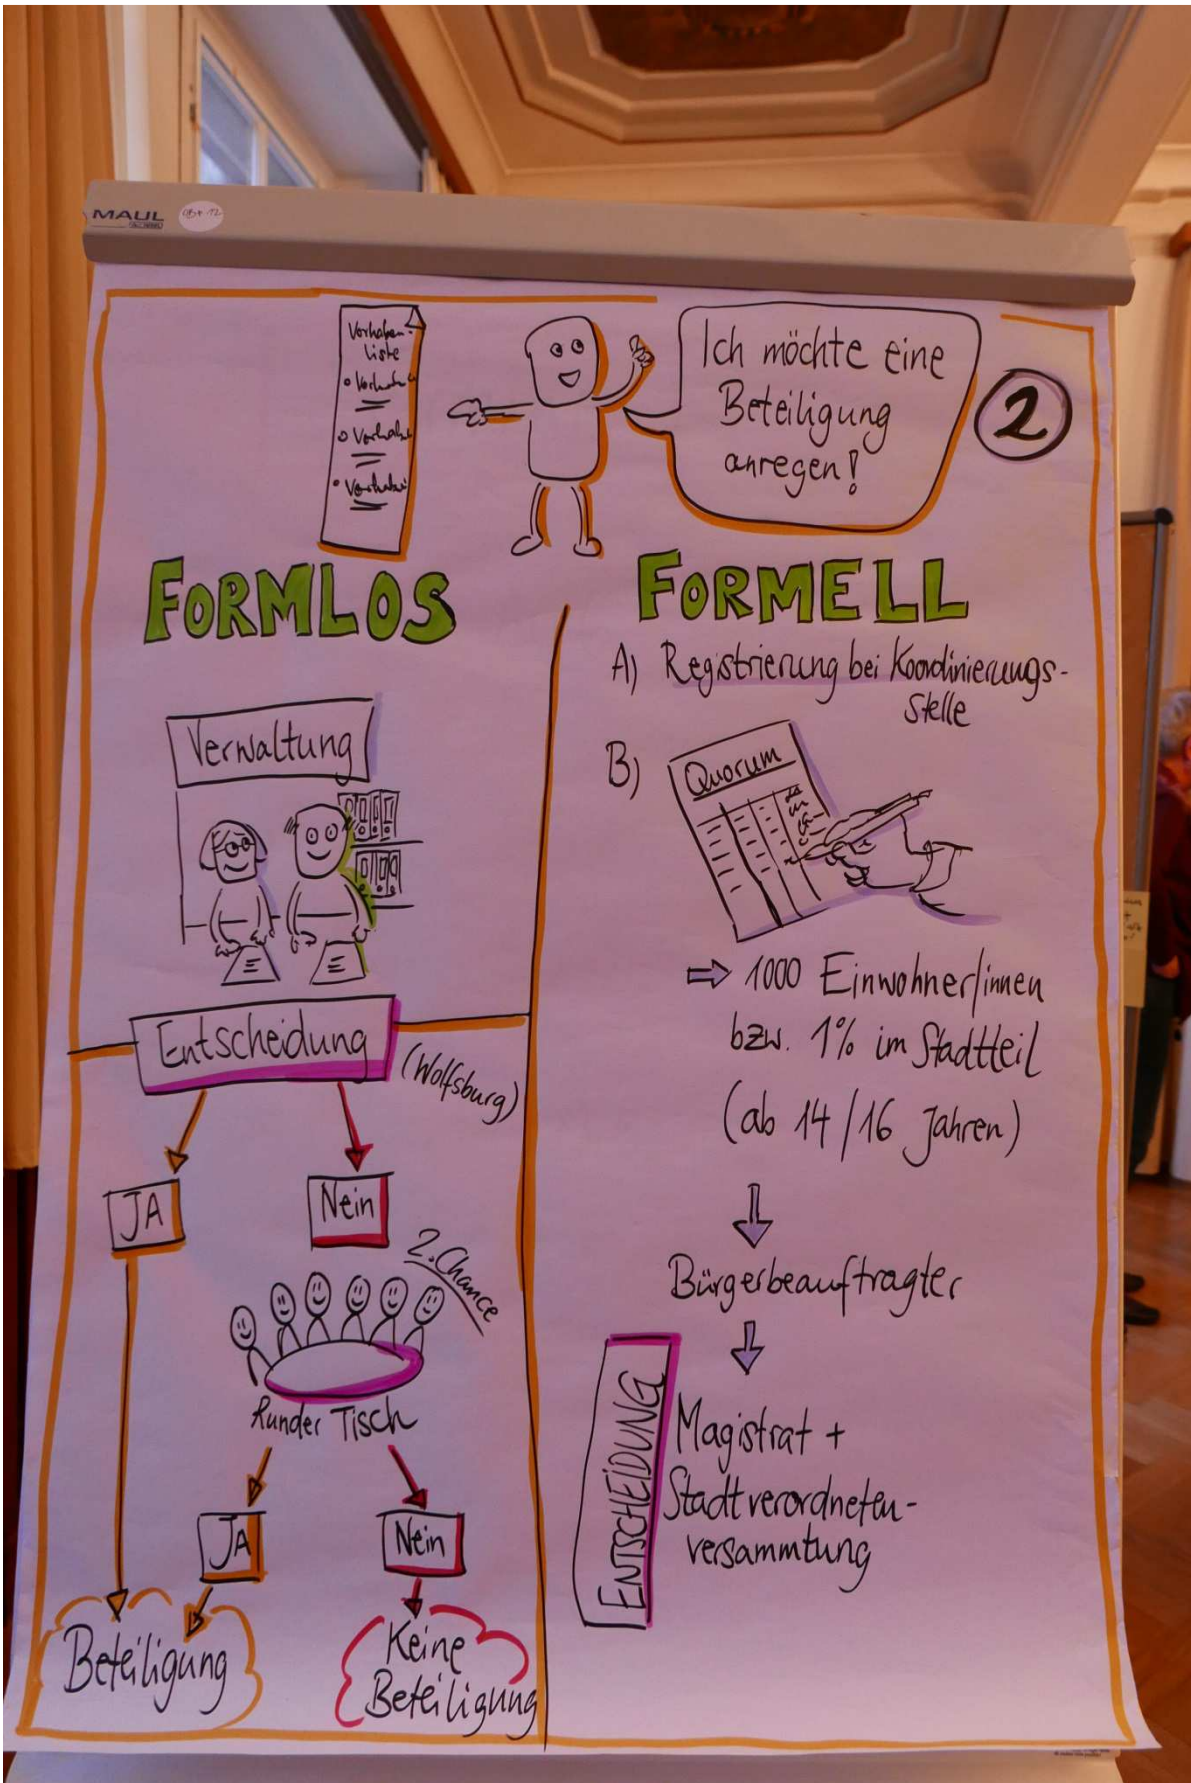 MAUL
Vorhaben-
liste
Ich möchte eine
Beteiligung
anregen!
2
FORMLOS
FORMELL
Verwaltung
Entscheidung
(Wolfsburg)
JA
Nein
2. Chance
Runder Tisch
JA
Nein
Beteiligung
Keine
Beteiligung
A) Registrierung bei Koordinierungs-
stelle
B)
Quorum
⇒ 1000 Einwohner/innen
bzw. 1% im Stadtteil
(ab 14/16 Jahren)
Bürgerbeauftragter
ENTSCHEIDUNG
Magistrat +
Stadtverordneten-
versammtung